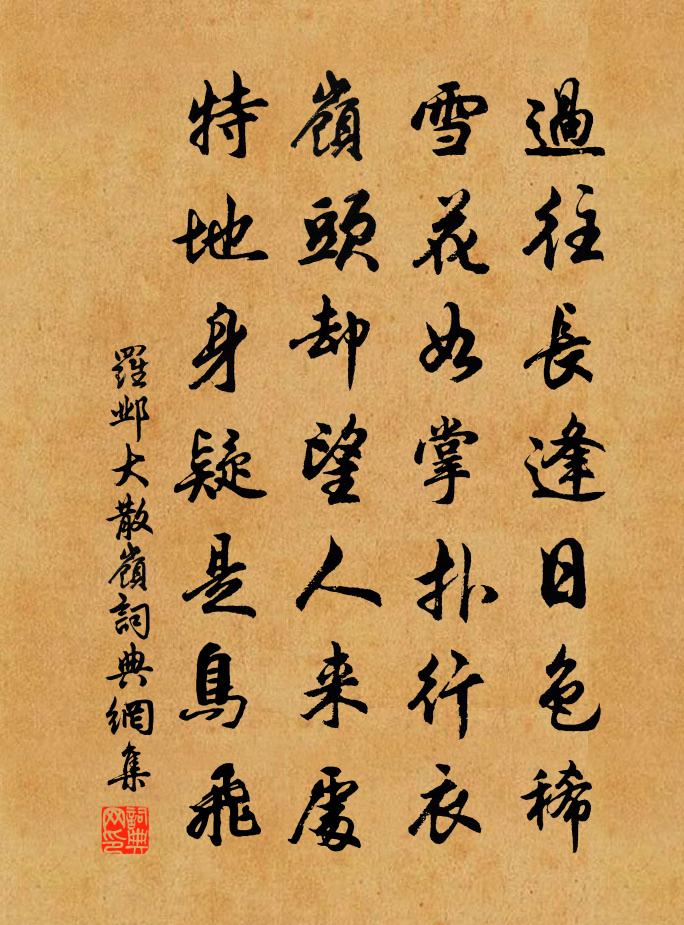 過往長逢日色稀
雪花如掌扑行衣
嶺頭却望人来處
特地身疑是鳥飛
羅邺大散嶺詞典網集
詞典网印